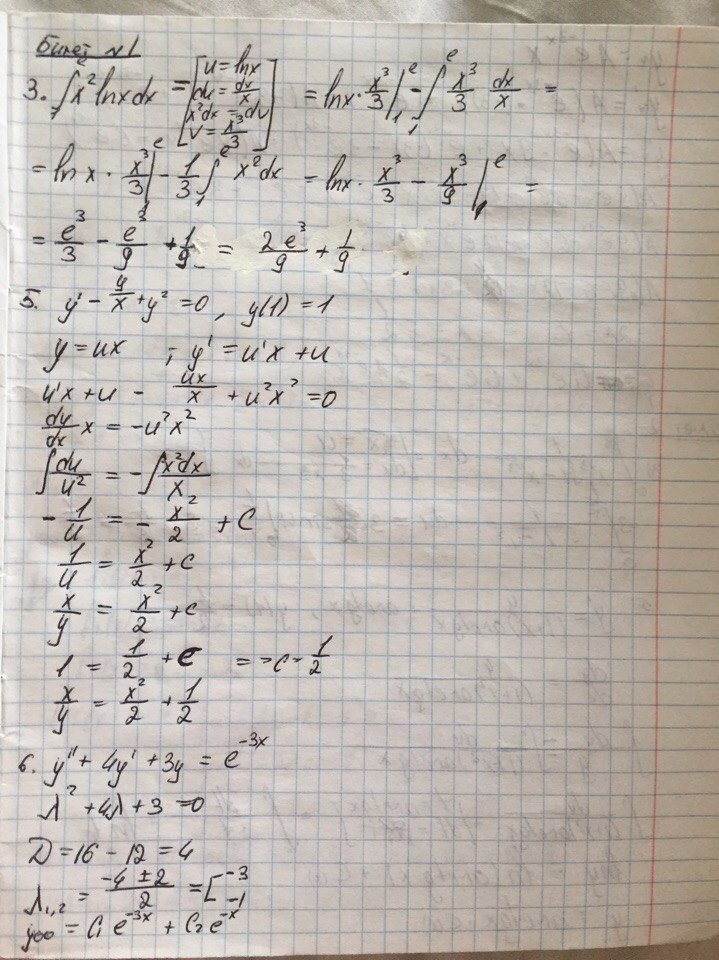 Билет №1
3. ∫₁ᵉ x² lnx dx = [u = lnx; du = dx/x; x²dx = dv; v = x³/3] = lnx · x³/3 |₁ᵉ - ∫₁ᵉ x³/3 dx/x =
= ln x · x³/3 |₁ᵉ - 1/3 ∫₁ᵉ x² dx = lnx · x³/3 - x³/9 |₁ᵉ =
= e³/3 - e³/9 + 1/9 = 2e³/9 + 1/9
5. y' - y/x + y² = 0, y(1) = 1
y = ux ; y' = u'x + u
u'x + u - ux/x + u²x² = 0
du/dx x = -u²x²
∫ du/u² = -∫ x²dx/x
- 1/u = - x²/2 + C
1/u = x²/2 + c
x/y = x²/2 + c
1 = 1/2 + c => c - 1/2
x/y = x²/2 + 1/2
6. y'' + 4y' + 3y = e⁻³ˣ
λ² + 4λ + 3 = 0
D = 16 - 12 = 4
λ₁,₂ = (-4 ± 2)/2 = [-3; -1
yoo = C₁ e⁻³ˣ + C₂ e⁻ˣ